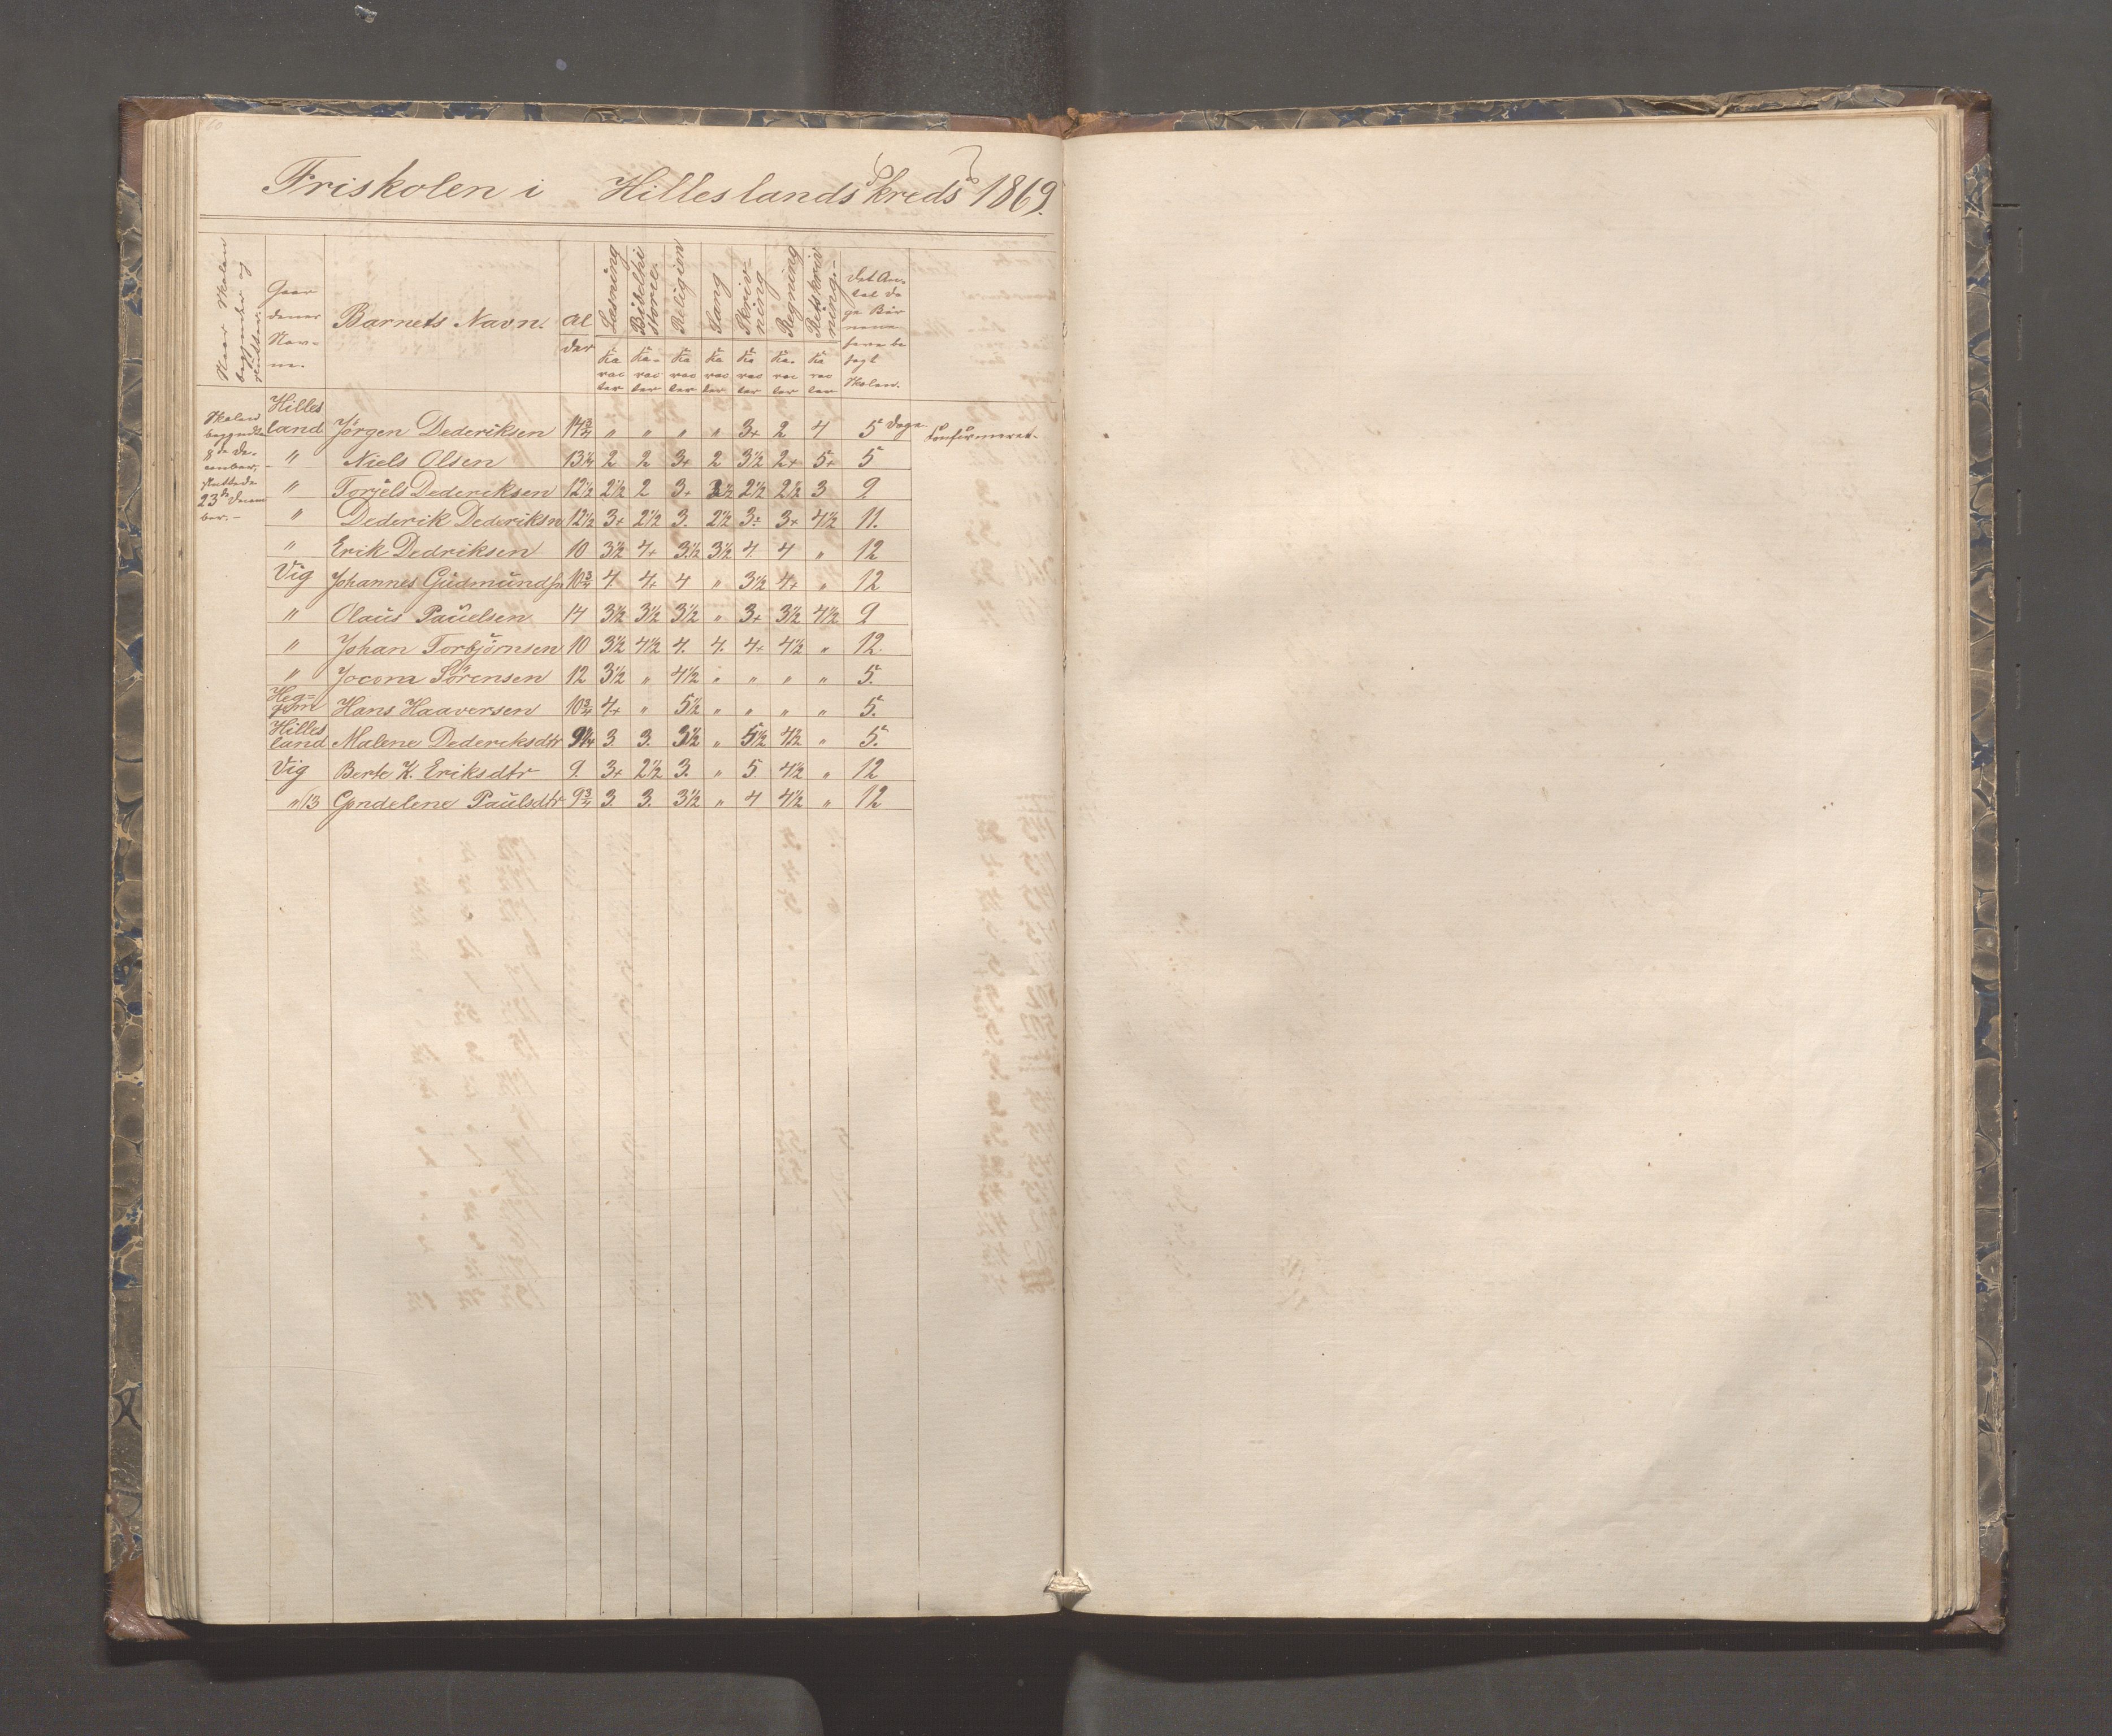 Friskolen i Hilleslands kreds 1869.
Naar Skolen begynder og slutter.
Gaardenes Navne.
Barnets Navn.
Alder
Læsning Karacter
Bibelhistorie. Karacter
Religion Karacter
Sang Karacter
Skrivning Karacter
Regning Karacter
Retskrivning. Karacter
Det Antal Dage Børnene have besøgt Skolen.
Skolen begyndte 8de December, sluttede 23de December.
Hillesland Jörgen Dederiksen 14 3/4 " " " " 3+ 2 4 5 Dage. Confirmeret.
" Niels Olsen 13 1/4 2 2 3+ 2 3 1/2 2+ 5+ 5
" Torjels Dedericksen 12 1/2 2 1/2 2 3+ 2 1/2 2 1/2 3 9
" Dederik Dederiksn 12 1/2 3+ 2 1/2 3. 2 1/2 3+ 4 1/2 11.
" Erik Dedriksen 10 3 1/2 4+ 3 1/2 3 1/2 4. 4 " 12
Vig Johannes Gudmundsn 10 3/4 4 4+ 4 " 3 1/2 4+ " 12
" Olaus Pauelsen 14 3 1/2 3 1/2 3 1/2 " 3+ 3 1/2 4 1/2 9
" Johan Torbjörnsen 10 3 1/2 4 1/2 4. 4. 4+ 4 1/2 " 12.
" Sörensen 12 3 1/2 " 4 1/2 " " " " 5.
Hans Haaversen 10 3/4 4+ " 5 1/2 " " " " 5.
Hillesland Malene Dedericksdtr 9 1/4 3. 3. 3 1/2 " 5 1/2 4 1/2 " 5.
Vig Berte K. Eriksdtr 9. 3+ 2 1/2 3. " 5. 4 1/2 " 12
" 13 Gondelene Paulsdtr 9 3/4 3. 3. 3 1/2 " 4 4 1/2 " 12